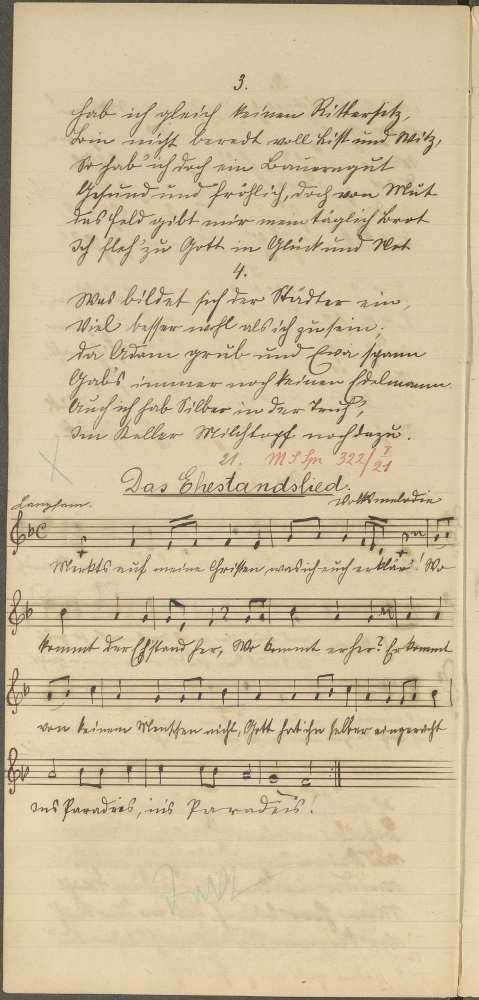 3.
Hab ich gleich keinen Rittersitz,
Bin nicht beredt voll List und Witz,
So hab' ich doch ein Bauerngut
Gesund und fröhlich, doch von Mut
Das Feld gibt mir mein täglich Brot
Ich fleh' zu Gott in Glück und Not
4.
Was bildet sich der Städter ein,
Viel besser wohl als ich zu sein;
Da Adam grub und Eva spann
Gab's immer noch keinen Edelmann.
Auch ich hab Silber in der Truh',
Im Keller Milchtopf noch dazu.
21. MS Sp 322/I 21
Das Ehestandslied.
Langsam. Volksmelodie
Merkts auf meine Christen was ich euch erklär'! Wo
kommt der Ehstand her, Wo kommt er her? Er kommt
von keinem Menschen nicht, Gott hat ihn selber eingericht
ins Paradeis, in's Paradeis!